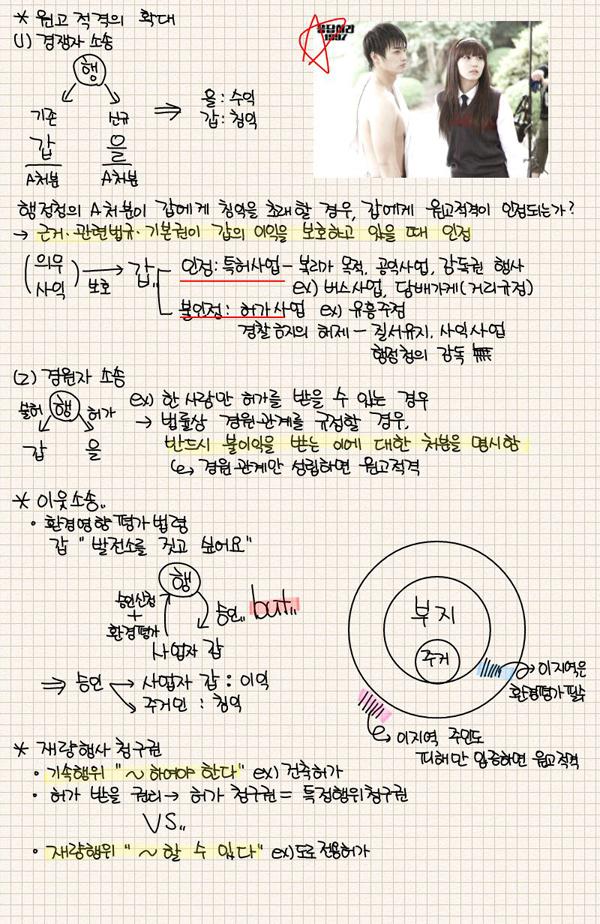 * 원고적격의 확대
(1) 경쟁자 소송
응답하라
1997
행
기존 신규
갑 을
A처분 A처분
⇒ 을 : 수익
갑 : 침익
행정청의 A처분이 갑에게 침익을 초래할 경우, 갑에게 원고적격이 인정되는가?
→ 근거·관련법규·기본권이 갑의 이익을 보호하고 있을 때 인정
(의무 사익) → 보호 갑
인정 : 특허사업 - 복리가 목적, 공익사업, 감독권 행사
ex) 버스사업, 담배가게(거리규정)
불인정 : 허가사업 ex) 유흥주점
경찰금지의 해제 - 질서유지, 사익사업
행정청의 감독 無
(2) 경원자 소송
불허 행 허가
갑 을
ex) 한 사람만 허가를 받을 수 있는 경우
→ 법률상 경원관계를 규정할 경우,
반드시 불이익을 받는 이에 대한 처분을 명시함
↪ 경원관계만 성립하면 원고적격
* 이웃소송..
· 환경영향평가법령
갑 "발전소를 짓고 싶어요"
행
승인신청
+
환경평가
승인.. but..
사업자 갑
⇒ 승인 → 사업자 갑 : 이익
→ 주거인 : 침익
부지
주거
→ 이지역은
환경평가 필수
→ 이지역 주민도
피해만 입증하면 원고적격
* 재량행사 청구권
· 기속행위 "~하여야 한다" ex) 건축허가
· 허가 받을 권리 → 허가 청구권 = 특정행위청구권
VS..
· 재량행위 "~할 수 있다" ex) 도로점용허가